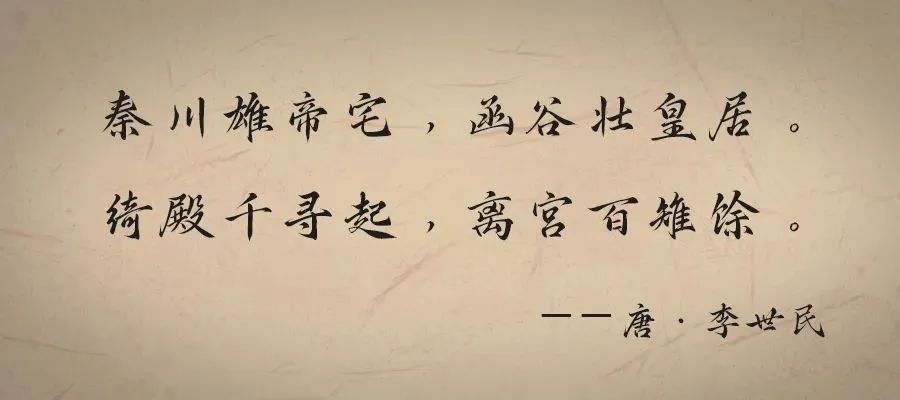 秦川雄帝宅，函谷壮皇居。
绮殿千寻起，离宫百雉馀。
——唐·李世民